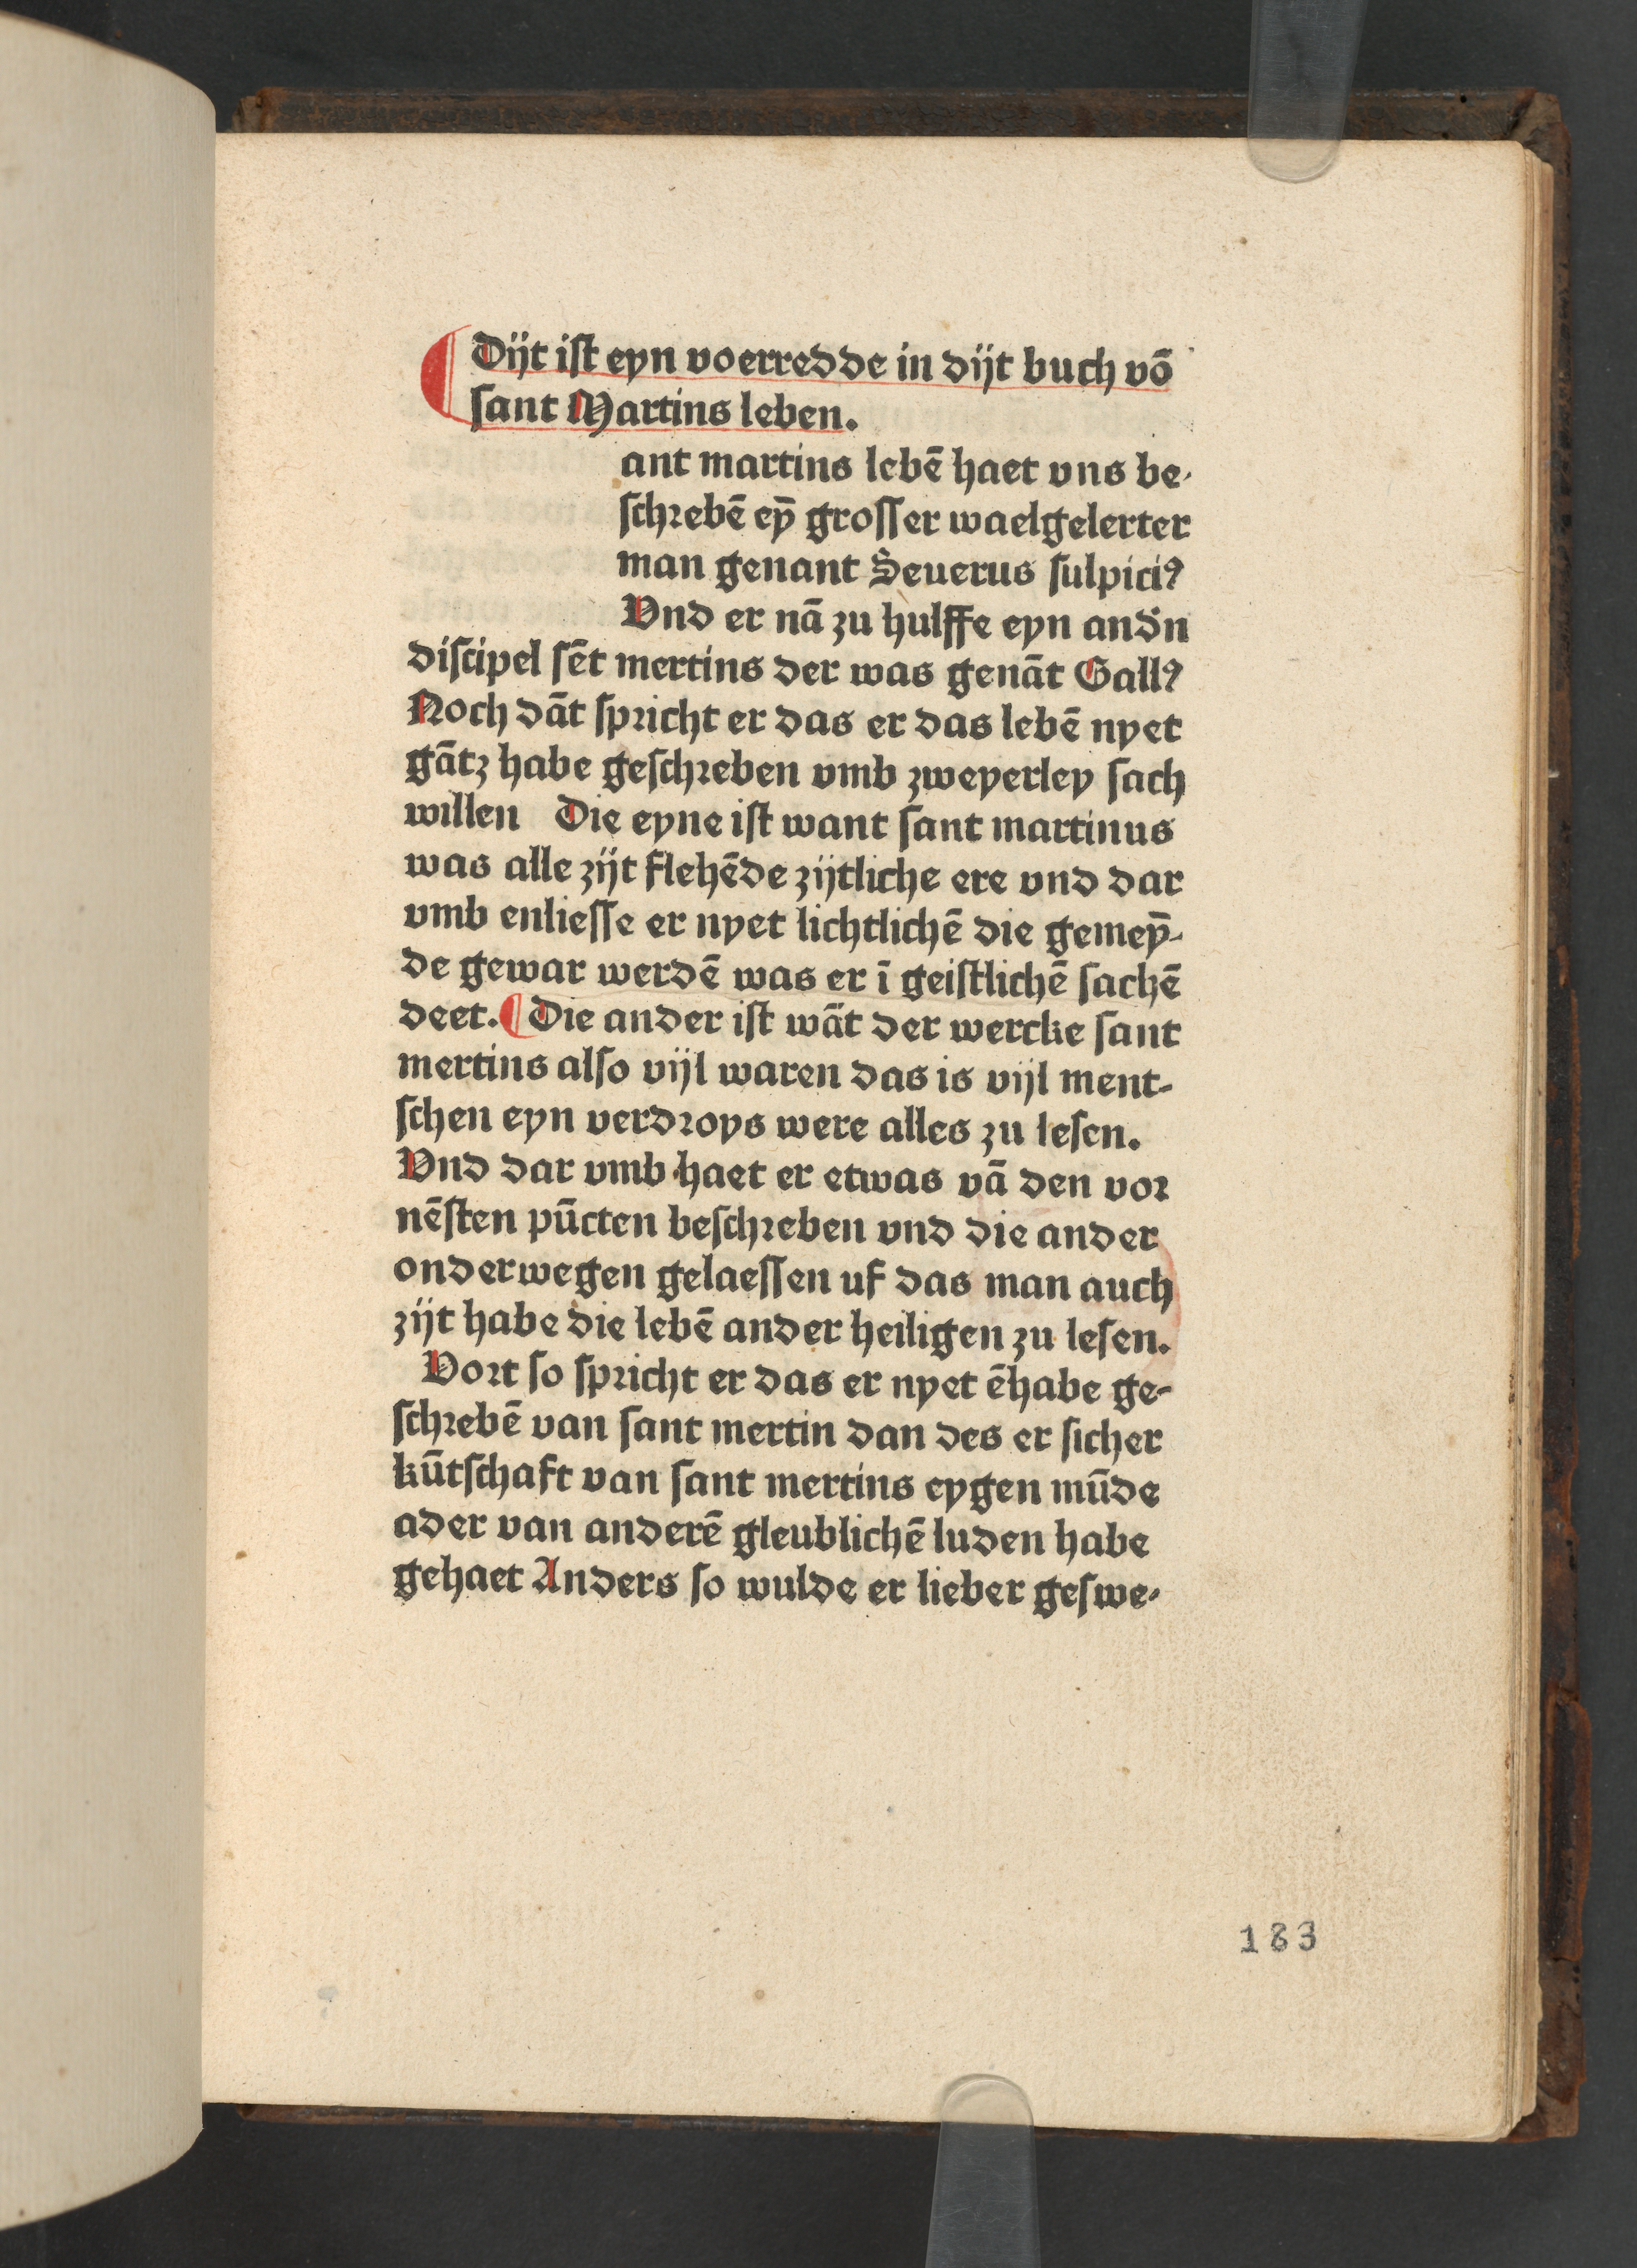 ¶ Dijt iſt eyn voerredde in dijt buch vō
ſant Martins leben.
ant martins lebē haet vns be⸗
ſchꝛebē eyȳ groſſer waelgelerter
man genant Seuerus ſulpiciꝰ
Vnd er nā zu hulffe eyn andn̄
diſcipel ſēt mertins der was genāt Gallꝰ
Noch dāt ſpꝛicht er das er das lebē nyet
gātz habe geſchꝛeben vmb zweyerley ſach
willen Die eyne iſt want ſant martinus
was alle zijt flehēde zijtliche ere vnd dar
vmb enlieſſe er nyet lichtlichē die gemeȳ⸗
de gewar werdē was er ī geiſtlichē ſachē
deet. ¶ Die ander iſt wāt der wercke ſant
mertins alſo vijl waren das is vijl ment⸗
ſchen eyn verdꝛoys were alles zu leſen.
Vnd dar vmb haet er etwas vā den voꝛ
nēſten pūcten beſchꝛeben vnd die ander
onderwegen gelaeſſen uf das man auch
zijt habe die lebē ander heiligen zu leſen.
Voꝛt ſo ſpꝛicht er das er nyet ēhabe ge⸗
ſchꝛebē van ſant mertin dan des er ſicher
kūtſchaft van ſant mertins eygen mūde
ader van anderē gleublichē luden habe
gehaet Anders ſo wulde er lieber geſwe⸗
183